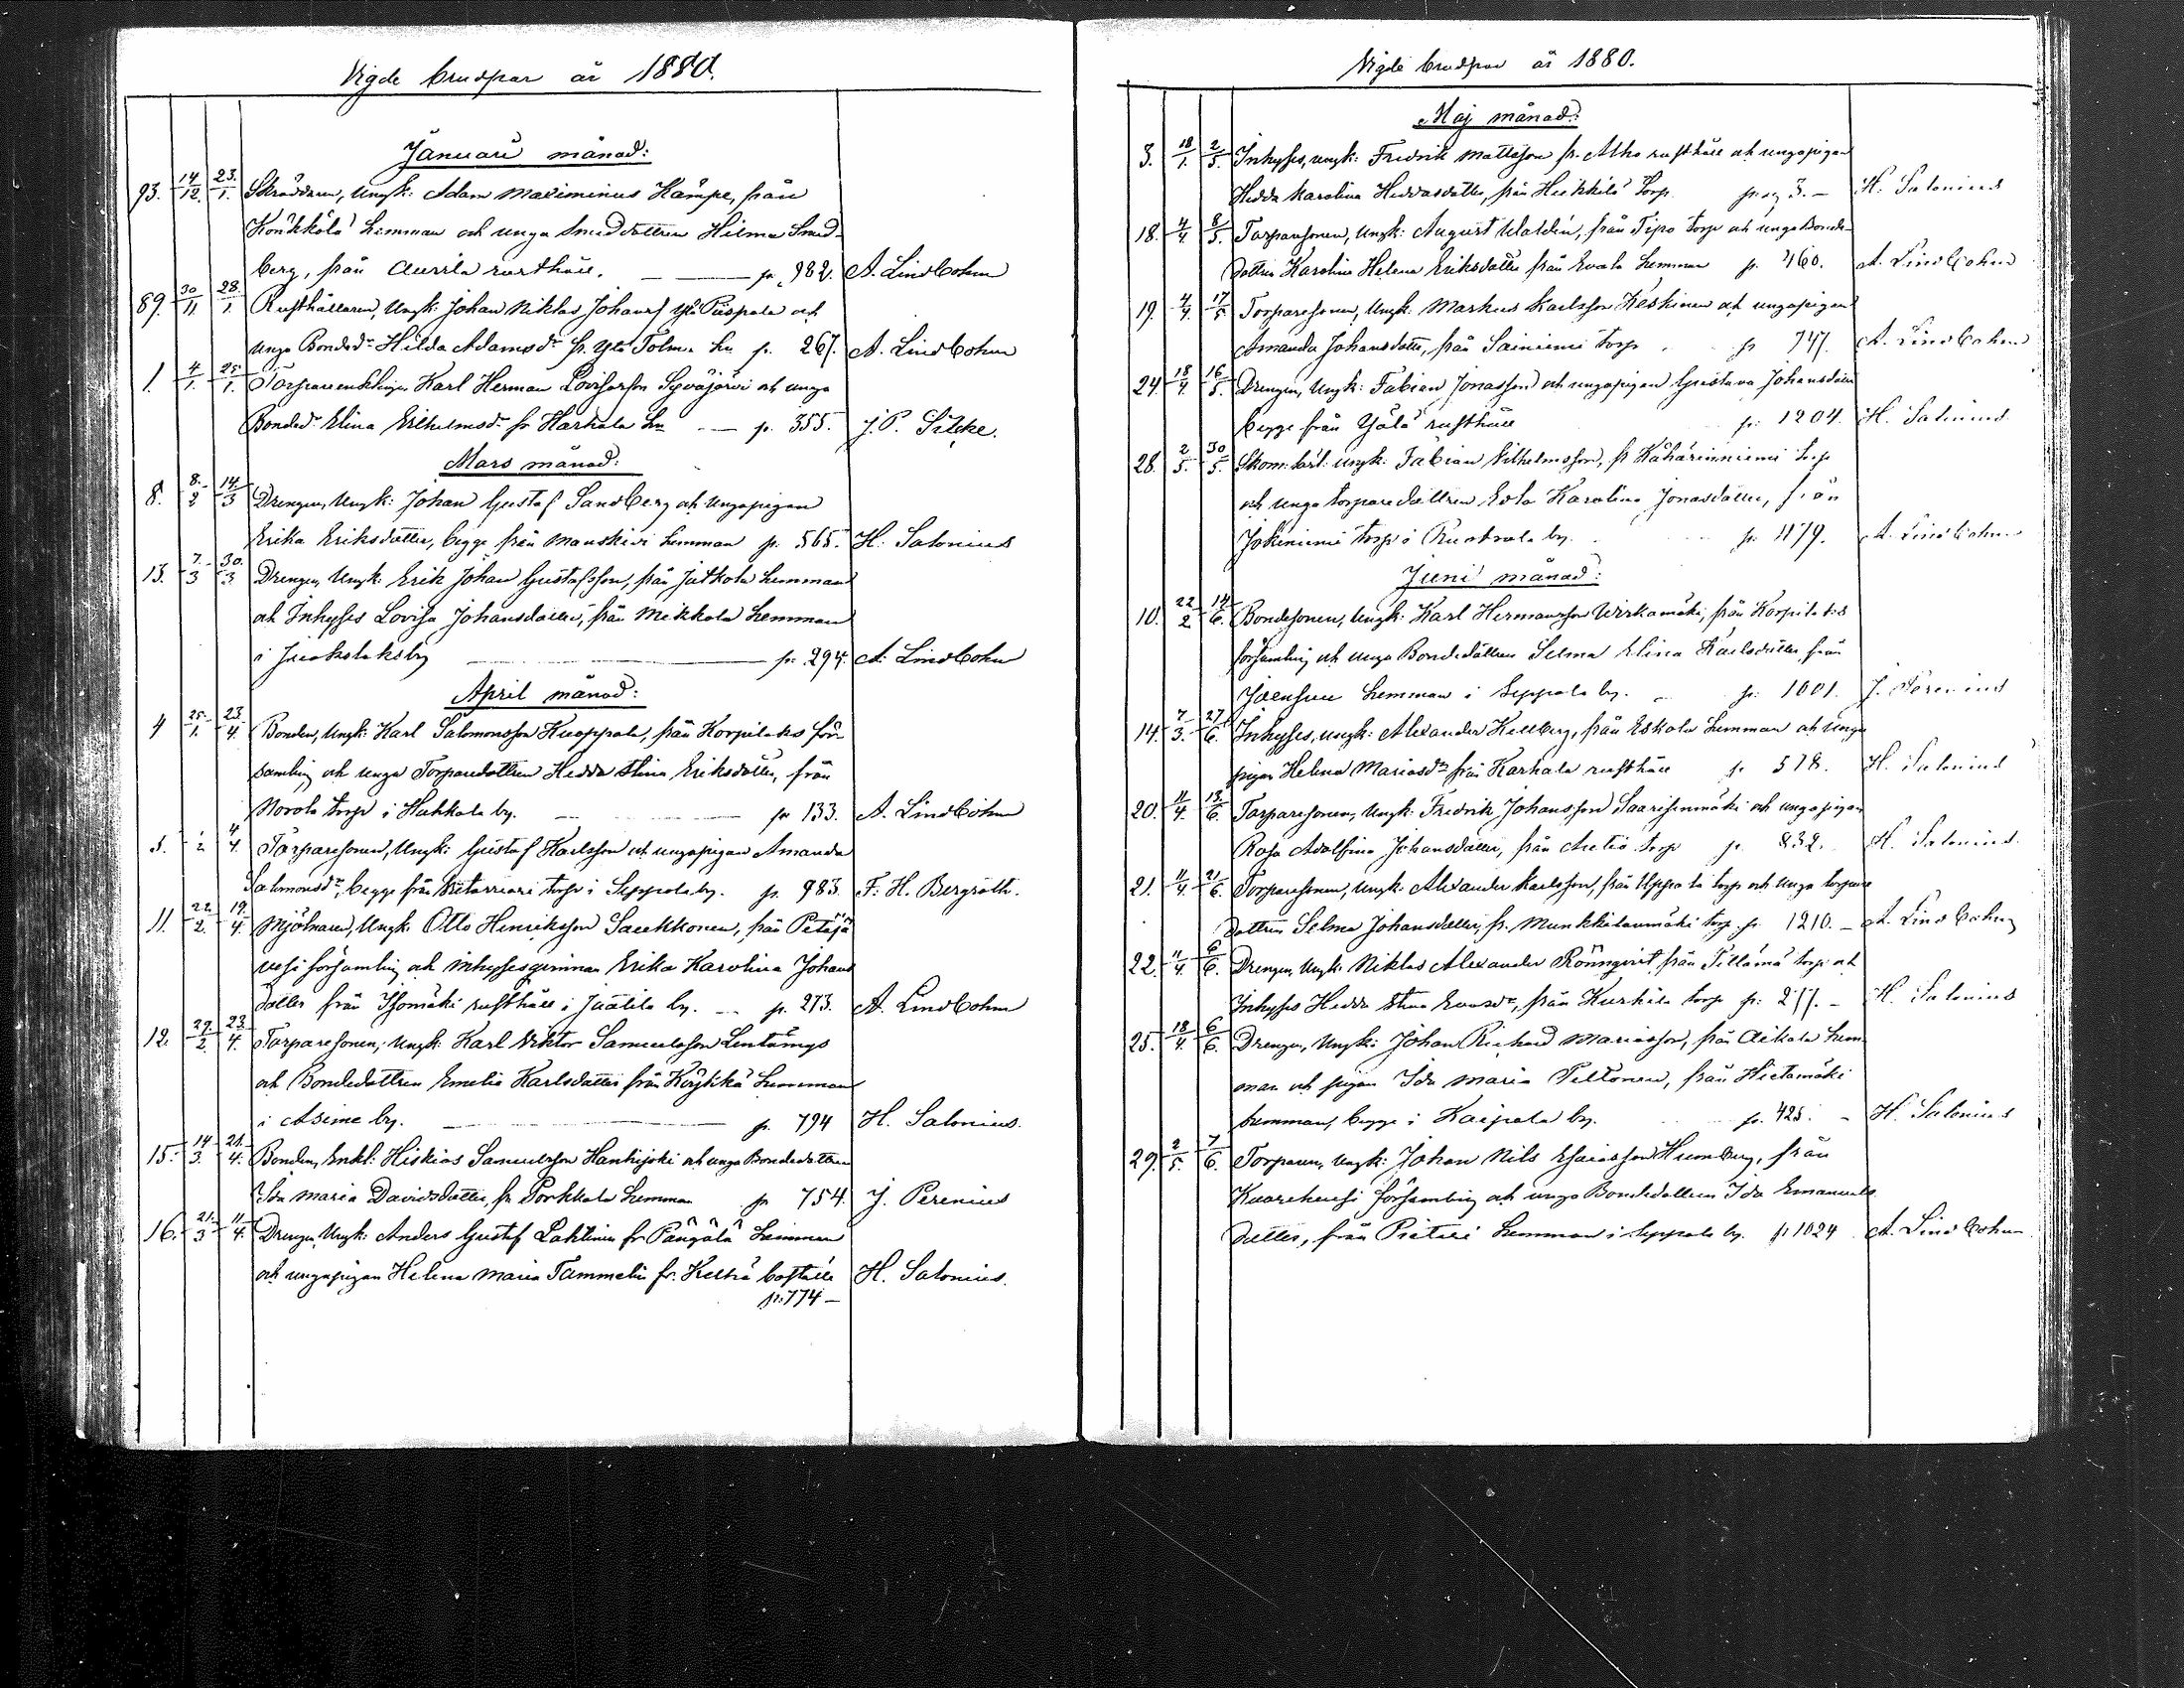 Vigde brudpar år 1880.
Januari månad:
93. 14/12. 23./1. Skräddaren, Ungk: Adam Maximinus Kämpe, från
Könkkölä hemman och unga Smeddottren Hilma Smed-
berg, från Aurila rusthåll. — p. 982. A. Lindbohm
89. 30/11. 28./1. Rusthållaren, Ungk: Johan Niklas Johanss Yli Piispala och
unga Bonded:r Hilda Adamsd:r fr. Yli Tolm. hn p. 267. A. Lindbohm
1. 4/1. 25./1. Karl Herman Lovisasson Syväjärvi och unga
Bonded:r Elina Vilhelmsd:r fr Harhala hn — p. 355. J. P.
Mars månad:
8. 8./2 14./3 Drengen, Ungk: Johan Gustaf Sandberg och Ungapigan
Erika Eriksdotter, begge från Mauskivi hemman p. 565. H. Salonius
13. 7./3 30./3 Drengen, Ungk: Erik Johan Gustafsson, från Jutkola hemman
och Inhyses Lovisa Johansdotter, från Mekkola hemman
i by — p. 294. A. Lindbohm
April månad:
4 25./1. 23./4. Bonden, Ungk: Karl Salomonsson Kuoppala, från Korpilaks för-
samling och unga Torparedottren Hedda Stina Eriksdotter, från
Norola torp i Hakkala by. — p. 133. A. Lindbohm
5. 4/4. Torparesonen, Ungk: Gustaf Karlsson och ungapigan Amanda
Salomonsd:r, begge från torp i Seppola by. p. 983. F. H. Bergroth.
11. 22./2. 19./4. Mjölnaren, Ungk: Otto Henriksson Saukkonen, från Petäjä
vesi församling och inhysesqvinnan Erika Karolina Johans
dotter från Isomäki rusthåll i Juttila by. — p. 273. A. Lindbohm
12. 29./2. 23./4. Torparesonen, Ungk: Karl Viktor Samuelsson
och Bondedottren Emelia Karlsdotter från hemman
i by. — p. 794 H. Salonius.
15. 14/3. 21./4. Bonden, Enkl: Hiskias Samuelsson Hankijoki och unga Bondedottren
Ida Maria Davidsdotter, fr. Porkkala hemman p 754. J. Perenius
16. 21./3 11./4. Drengen, Ungk: Anders Gustaf Lahtinen fr. Pängälä hemman
och ungapigan Helena Maria Tammelin fr. boställe H. Salonius.
p. 774 —
Vigde brudpar år 1880.
Maj månad:
3. 18/1. 2/5. Inhyses, ungk: Fredrik Mattsson fr. Alho rusthåll och ungapigan
Hedda Karolina Heddasdotter, från Heikkilä Torp. pag 3. — H. Salonius
18. 4/4. 8/5. Torparesonen, Ungk: August Waldén, från Tipo torp och unga Bonde-
dottren Karolina Helena Eriksdotter från Evala hemman p. 460. A. Lindbohm
19. 4/4. 17/5 Torparesonen, Ungk: Markus Karlsson Keskinen och ungapigan
Amanda Johansdotter, från Sainiemi torp p 747. A. Lindbohm
24. 18/4. 16/5. Drengen, Ungk: Fabian Jonasson och ungapigan Gustava Johansdotter
begge från rusthåll p. 1204. H. Salonius
28. 2/5. 30/5. ungk: Fabian Vilhelmsson, fr Kähäriniemi torp
och unga torparedottren Eva Karolina Jonasdotter, från
Jokiniemi torp i by. p. 1179. A. Lindbohm
Juni månad:
10. 22/2 14/6. Bondesonen, Ungk: Karl Hermansson Wirkamäki, från Korpilaks
församling och unga Bondedottren Selma Elina Karlsdotter, från
Joensuu hemman i Seppola by. p. 1001. J. Perenius
14. 7/3. 27/6. Inhyses, ungk: Alexander Kellberg, från Eskola hemman och Unga
pigan Helena Mariasd:r från Karhala rusthåll p. 578. H. Salonius
20. 11/4. 13/6. Torparesonen, Ungk: Fredrik Johansson Saarisenmäki och ungapigan
Rosa Adolfina Johansdotter, från torp p. 832. H. Salonius.
21. 11/4. 21/6. Torparesonen, Ungk: Alexander Karlsson, från torp och Unga torpare
dottren Selma Johansdotter, fr. torp. p. 1210. — A. Lindbohm
22. 11/4. 6/6. Drengen, Ungk: Niklas Alexander Rönnqvist, från torp och
Inhyses Hedda Stina Evasd:r, från Kurkila torp p: 277. — H. Salonius
25. 18/4. 6/6. Drengen, Ungk: Johan Richard Mariasson, från hem-
man och pigan Ida Maria Peltonen, från Hietamäki
hemman, begge i Kaipola by. p. 425. — H. Salonius
29. 2/5. 7/6. Torparen, Ungk: Johan Nils Esaiasson Humberg, från
församling och unga Bondedottren Ida Emanuels
dotter, från hemman i Seppola by. p 1024 A. Lindbohm